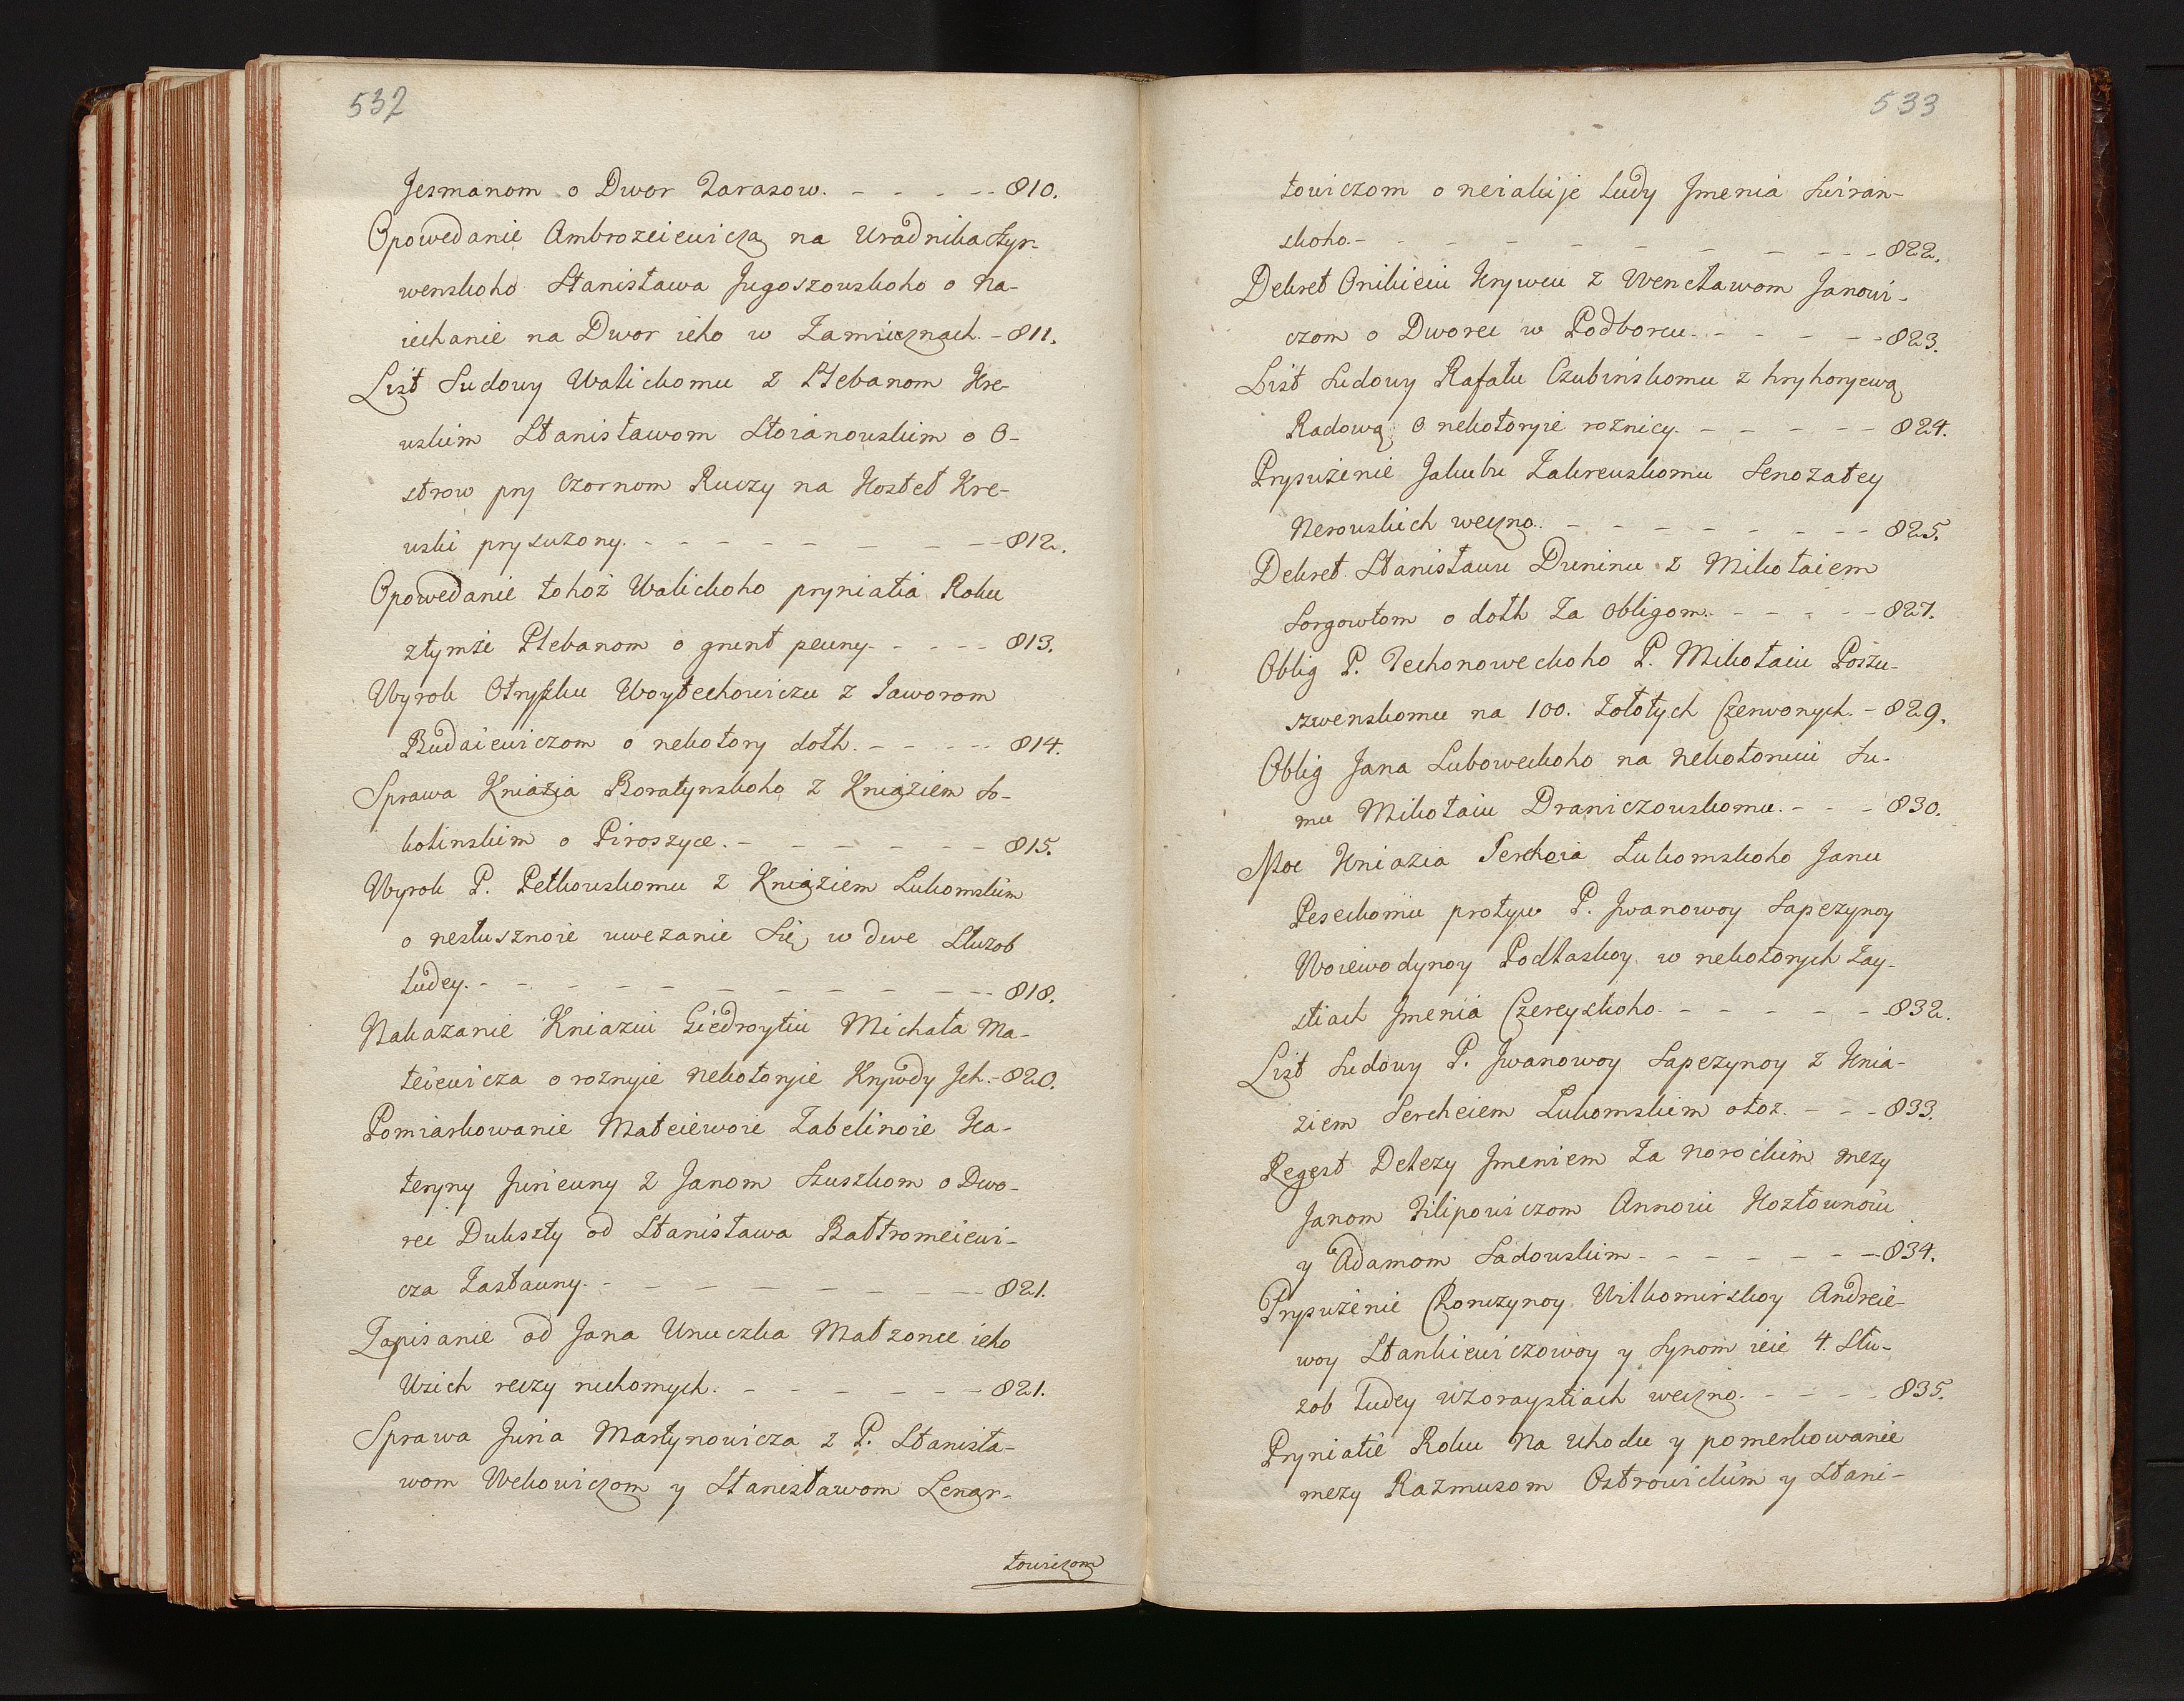 532
Jesmanom o Dwor Zarasow. - - - - - 810.
Opowedanie Ambrozeiewicza na Uradnika Szyr-
wenskoho Stanisława Jugoszouskoho o Na-
iechanie na Dwor ieho w Zamiesznach. - 811.
List Sudowy Walickomu z Plebanom Kre-
uskim Stanisławom Stoianouskim o O-
strow pry Czornom Ruczy na Kosteł Kre-
uski prysuzony. - - - - - - - - 812.
Opowedanie tohoż Walickoho pryniatia Roku
ztymże Plebanom o grunt pewny. - - - - 813.
Wyrok Otryszku Woytechowiczu z Jaworom
Budaiewiczom o nekotory dołh. - - - - - 814.
Sprawa Kniazia Boratynskoho z Kniaziem So-
kolinskim o Piroszyce. - - - - - - - 815.
Wyrok P. Petkouskomu z Kniaziem Lukomskim
o nesłusznoie uwezanie Się w dwe Słuzob
Ludey. - - - - - - - - - - - 818.
Nakazanie Kniaziu Giedroytiu Michała Ma-
teiewicza o roznyie nekotoryie Krywdy Jch. - 820.
Pomiarkowanie Mateiewoie Zabelinoie Ka-
teryny Juriewny z Janom Szuszkom o Dwo-
rec Dukszty od Stanisława Bałtromeiewi-
cza Zastauny. - - - - - - - - - 821.
Zapisanie od Jana Unuczka Małzonce ieho
Wsich reczy ruchomych. - - - - - - - 821.
Sprawa Juria Martynowicza z P. Stanisła-
wom Wekowiczom y Stanisławom Lenar-
towiczom
533
towiczom o neiakije Ludy Jmenia Swiran-
skoho. - - - - - - - - - - 822.
Dekret Onikieiu Hrywcu z Wencławom Janowi-
czom o Dworec w Podborcu. - - - - - 823.
List Sudowy Rafału Czubińskomu z hryhoryewą
Radową o nekotoryie roznicy. - - - - - 824.
Prysużenie Jakubu Zakreuskomu Senozatey
Nerouskich weczno. - - - - - - - - 825.
Dekret Stanisławu Duninu z Mikołaiem
Sorgowtom o dołh Za Obligom. - - - - 827.
Oblig P. Techonoweckoho P. Mikołaiu Poszu-
szwenskomu na 100. Zołotych Czerwonych. - 829.
Oblig Jana Luboweckoho na Nekotoruiu Su-
mu Mikołaiu Draniczouskomu. - - - 830.
Moc Kniazia Serheia Łukomskoho Janu
Peseckomu protyw P. Jwanowoy Sapezynoy
Woiewodynoy Podlaskoy w nekotorych Zay-
stiach Jmenia Czereyskoho. - - - - - 832.
List Sudowy P. Jwanowoy Sapezynoy z Knia-
ziem Serheiem Lukomskim otoz. - - - 833.
Regest Delezy Jmeniem Za Norockim mezy
Janom Filipowiczom Annoiu Kozłounoiu
y Adamom Sadouskim. - - - - - - 834.
Prysużenie Choruzynoy Wilkomirskoy Andreie-
woy Stankiewiczowoy y Synom ieie 4. Słu-
zob Ludey Wzoraystiach weczno. - - - - 835.
Pryniatie Roku Na Uhodu y pomerkowanie
mezy Razmusom Ostrowickim y Stani-